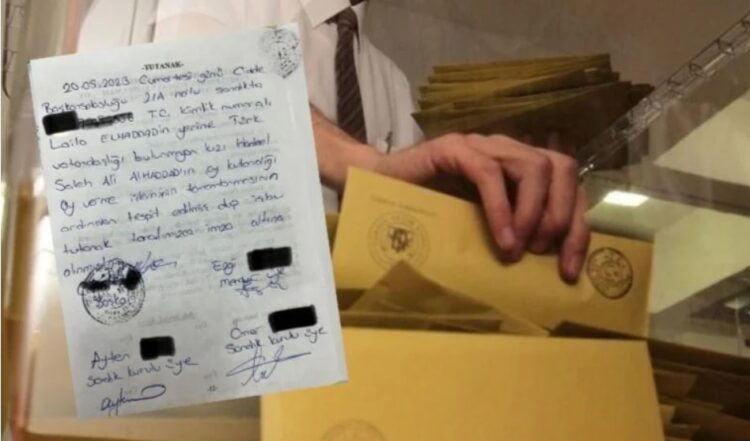 -TUTANAK-
20.05.2023 Cumartesi günü Cidde
Başkonsolosluğu 21A nolu sandıkta
T.C. Kimlik numaralı
Laila ELHADAD'ın yerine Türk
vatandaşlığı bulunmayan kızı
Saleh Ali ALHADDAD'ın oy kullandığı
oy verme işleminin tamamlanmasının
ardından tespit edilmiş olup işbu
tutanak tarafımızca imza altına
alınmıştır.
Ezgi
Başkan
Ömer
Sandık kurulu üye
Ayten
Sandık kurulu üye